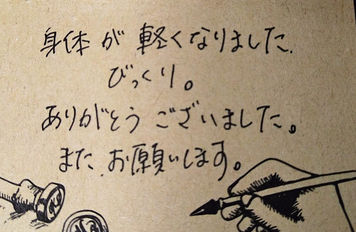 身体が軽くなりました.
びっくり。
ありがとうございました。
また、お願いします。